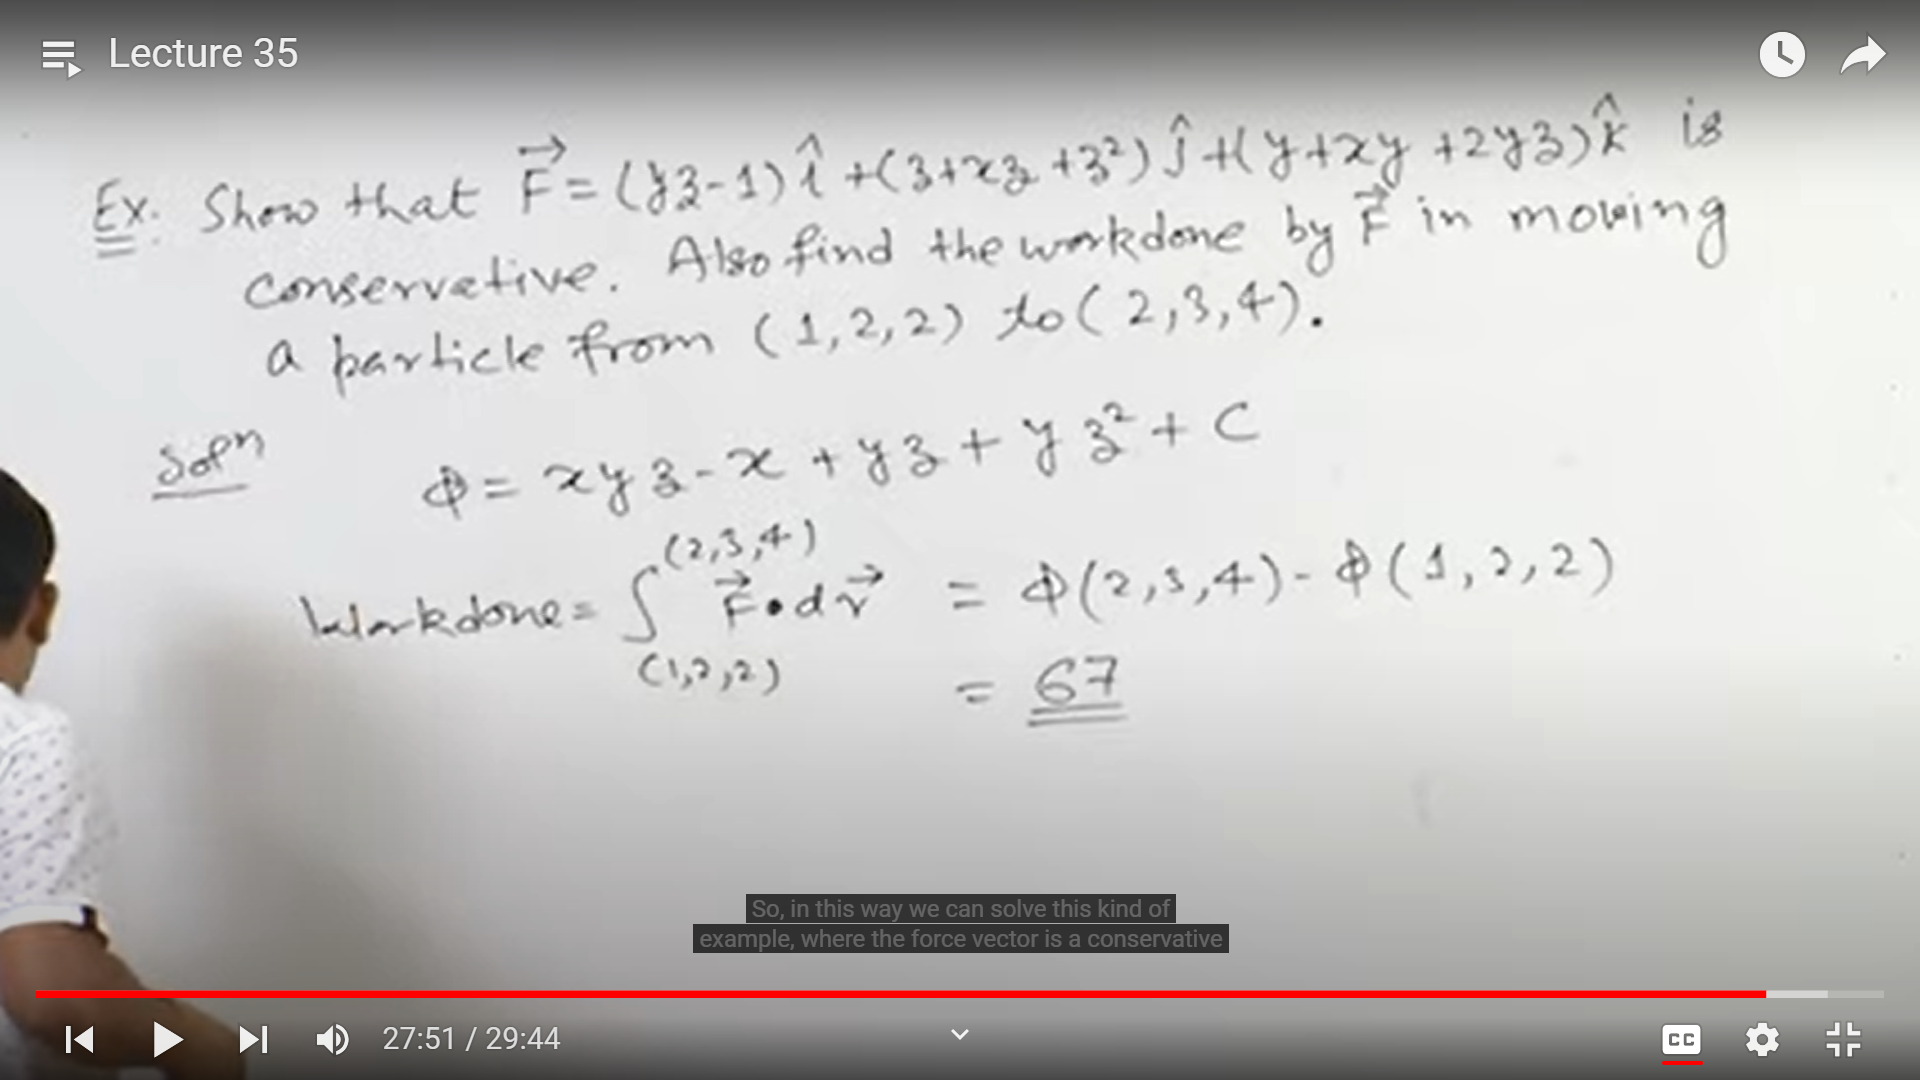 Lecture 35
Ex. Show that F⃗ = (yz-1) î + (z+xz+z²) ĵ + (y+xy+2yz) k̂ is
conservative. Also find the workdone by F⃗ in moving
a particle from (1,2,2) to (2,3,4).
Soln
φ = xyz - x + yz + yz² + C
Workdone = ∫_(1,2,2)^(2,3,4) F⃗ • dr⃗ = φ(2,3,4) - φ(1,2,2)
= 67
So, in this way we can solve this kind of
example, where the force vector is a conservative
27:51 / 29:44
CC